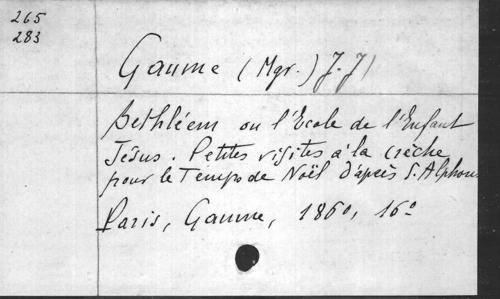 265
283
Gaume (Mgr.) J. J)
Bethléem ou l'Ecole de l'Enfant
Jésus. Petites visites à la crèche
pour le Temps de Noël d'après S. Alphons
Paris, Gaume, 1860, 16º